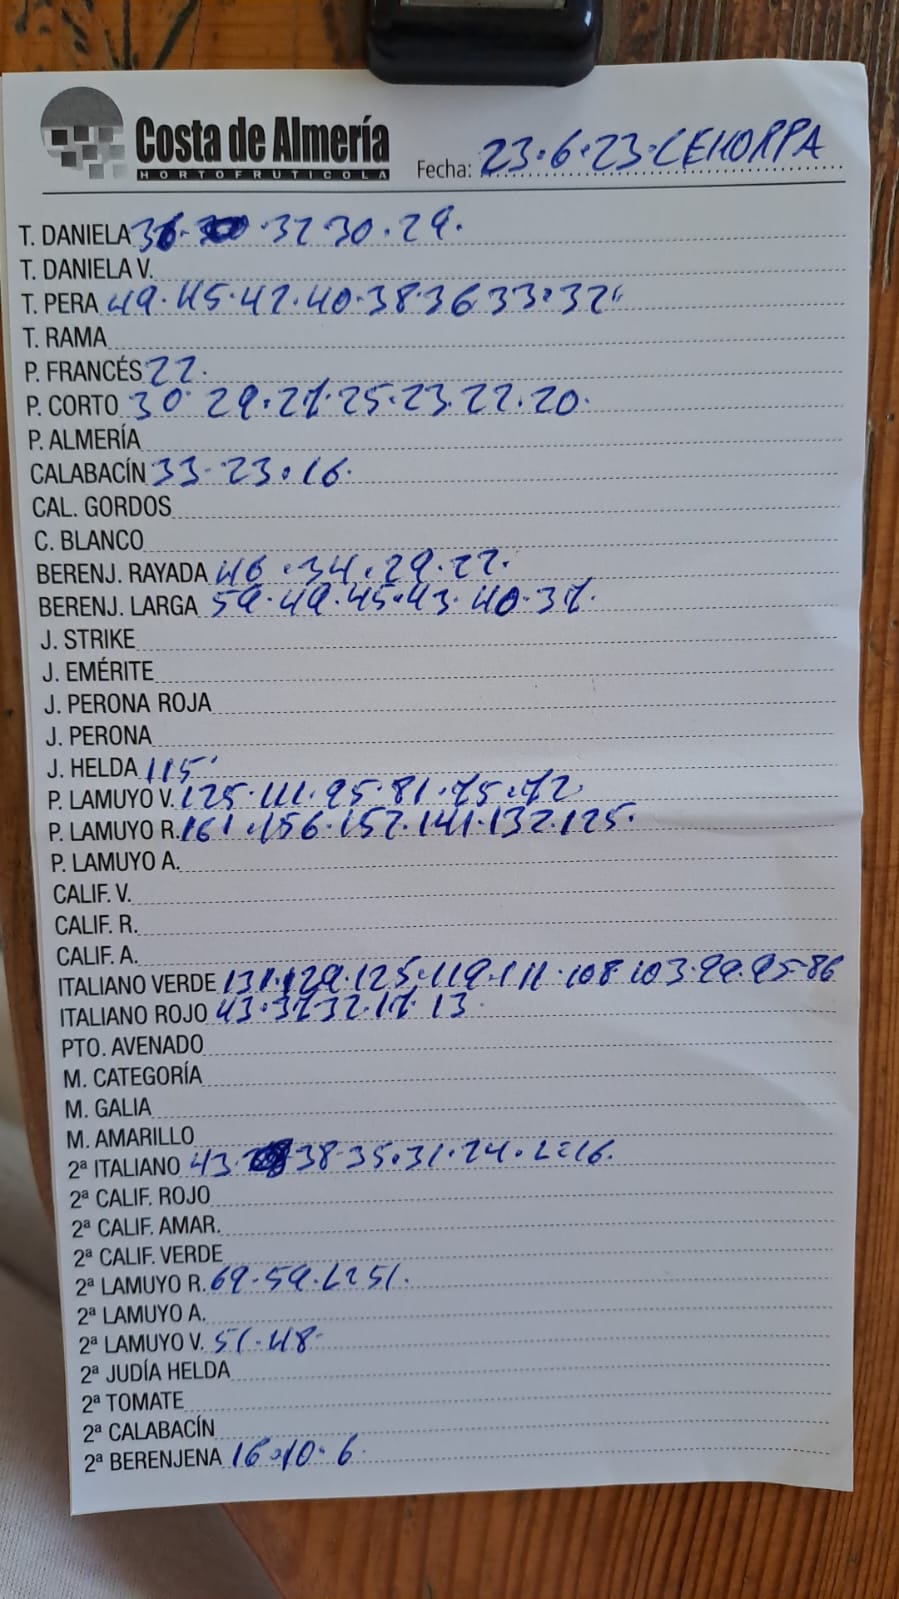 Costa de Almería
HORTOFRUTICOLA
Fecha: 23·6·23·CEHORPA
T. DANIELA 36· ·32 30·29·
T. DANIELA V.
T. PERA 49·45·42·40·38·36 33·32
T. RAMA
P. FRANCÉS 22·
P. CORTO 30 29·27·25·23·22·20·
P. ALMERÍA
CALABACÍN 33·23·16·
CAL. GORDOS
C. BLANCO
BERENJ. RAYADA 46·34·29·22·
BERENJ. LARGA 59·49·45·43·40·37·
J. STRIKE
J. EMÉRITE
J. PERONA ROJA
J. PERONA
J. HELDA 115
P. LAMUYO V. 125·111·95·81·75·72
P. LAMUYO R. 161·156·152·141·132·125·
P. LAMUYO A.
CALIF. V.
CALIF. R.
CALIF. A.
ITALIANO VERDE 131·129·125·119·111·108·103·99·95·86
ITALIANO ROJO 43·37 32·17·13·
PTO. AVENADO
M. CATEGORÍA
M. GALIA
M. AMARILLO
2ª ITALIANO 43· 38·35·31·24· 16·
2ª CALIF. ROJO
2ª CALIF. AMAR.
2ª CALIF. VERDE
2ª LAMUYO R. 69·59· 51·
2ª LAMUYO A.
2ª LAMUYO V. 51·48·
2ª JUDÍA HELDA
2ª TOMATE
2ª CALABACÍN
2ª BERENJENA 16·10·6